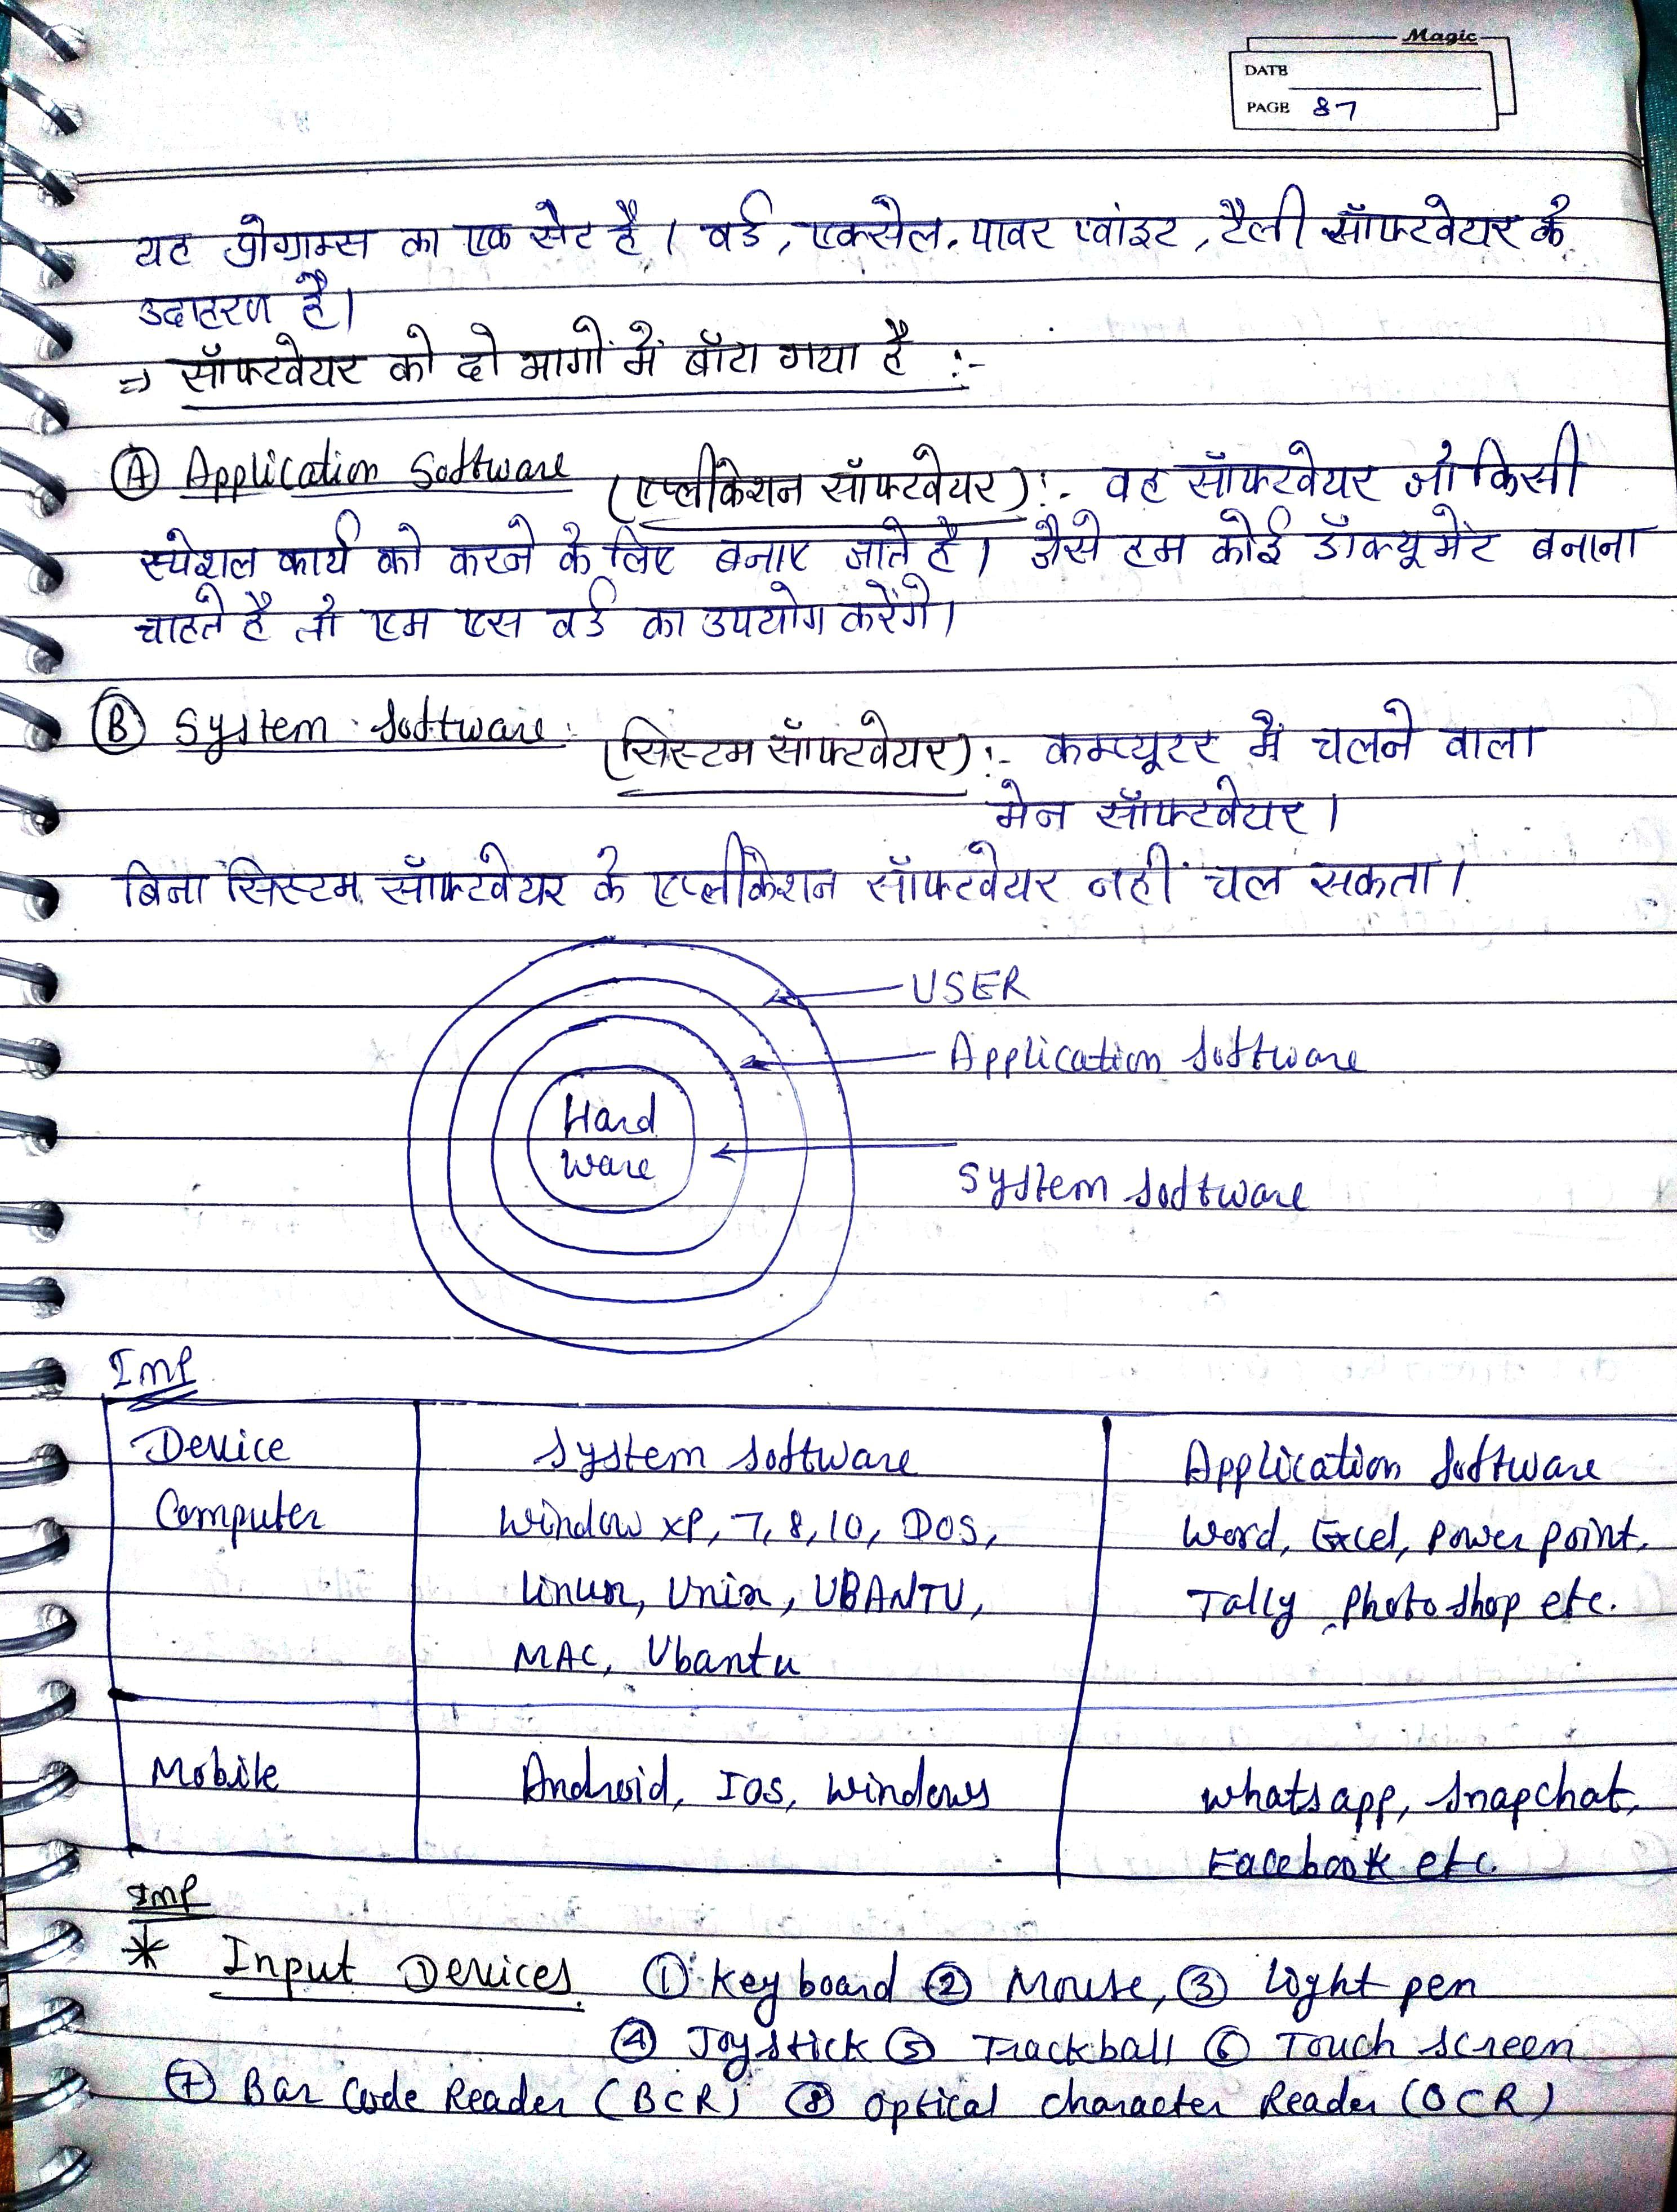 Magic
DATE
PAGE 87
यह प्रोग्राम्स का एक सेट है। वर्ड, एक्सेल, पावर प्वांइट, टैली सॉफ्टवेयर के
उदाहरण है।
⇒ सॉफ्टवेयर को दो भागों में बॉटा गया है :-
(A) Application Software (एप्लीकेशन सॉफ्टवेयर) :- वह सॉफ्टवेयर जो किसी
स्पेशल कार्य को करने के लिए बनाए जाते है। जैसे हम कोई डॉक्यूमेंट बनाना
चाहते है तो एम एस वर्ड का उपयोग करेंगे।
(B) System Software : (सिस्टम सॉफ्टवेयर) :- कम्प्यूटर में चलने वाला
मेन सॉफ्टवेयर।
बिना सिस्टम सॉफ्टवेयर के एप्लीकेशन सॉफ्टवेयर नहीं चल सकता।
USER
Application Software
Hard
Ware
System Software
Imp
Device System Software Application Software
Computer Window XP, 7, 8, 10, DOS, Word, Excel, Power point,
Linux, Unix, UBANTU, Tally, Photo shop etc.
MAC, Ubantu
Mobile Android, IOS, Windows Whatsapp, Snapchat,
Facebook etc.
Imp
* Input Devices. ① Key board ② Mouse, ③ Light pen
④ Joystick ⑤ Trackball ⑥ Touch screen
⑦ Bar Code Reader (BCR) ⑧ Optical character Reader (OCR)